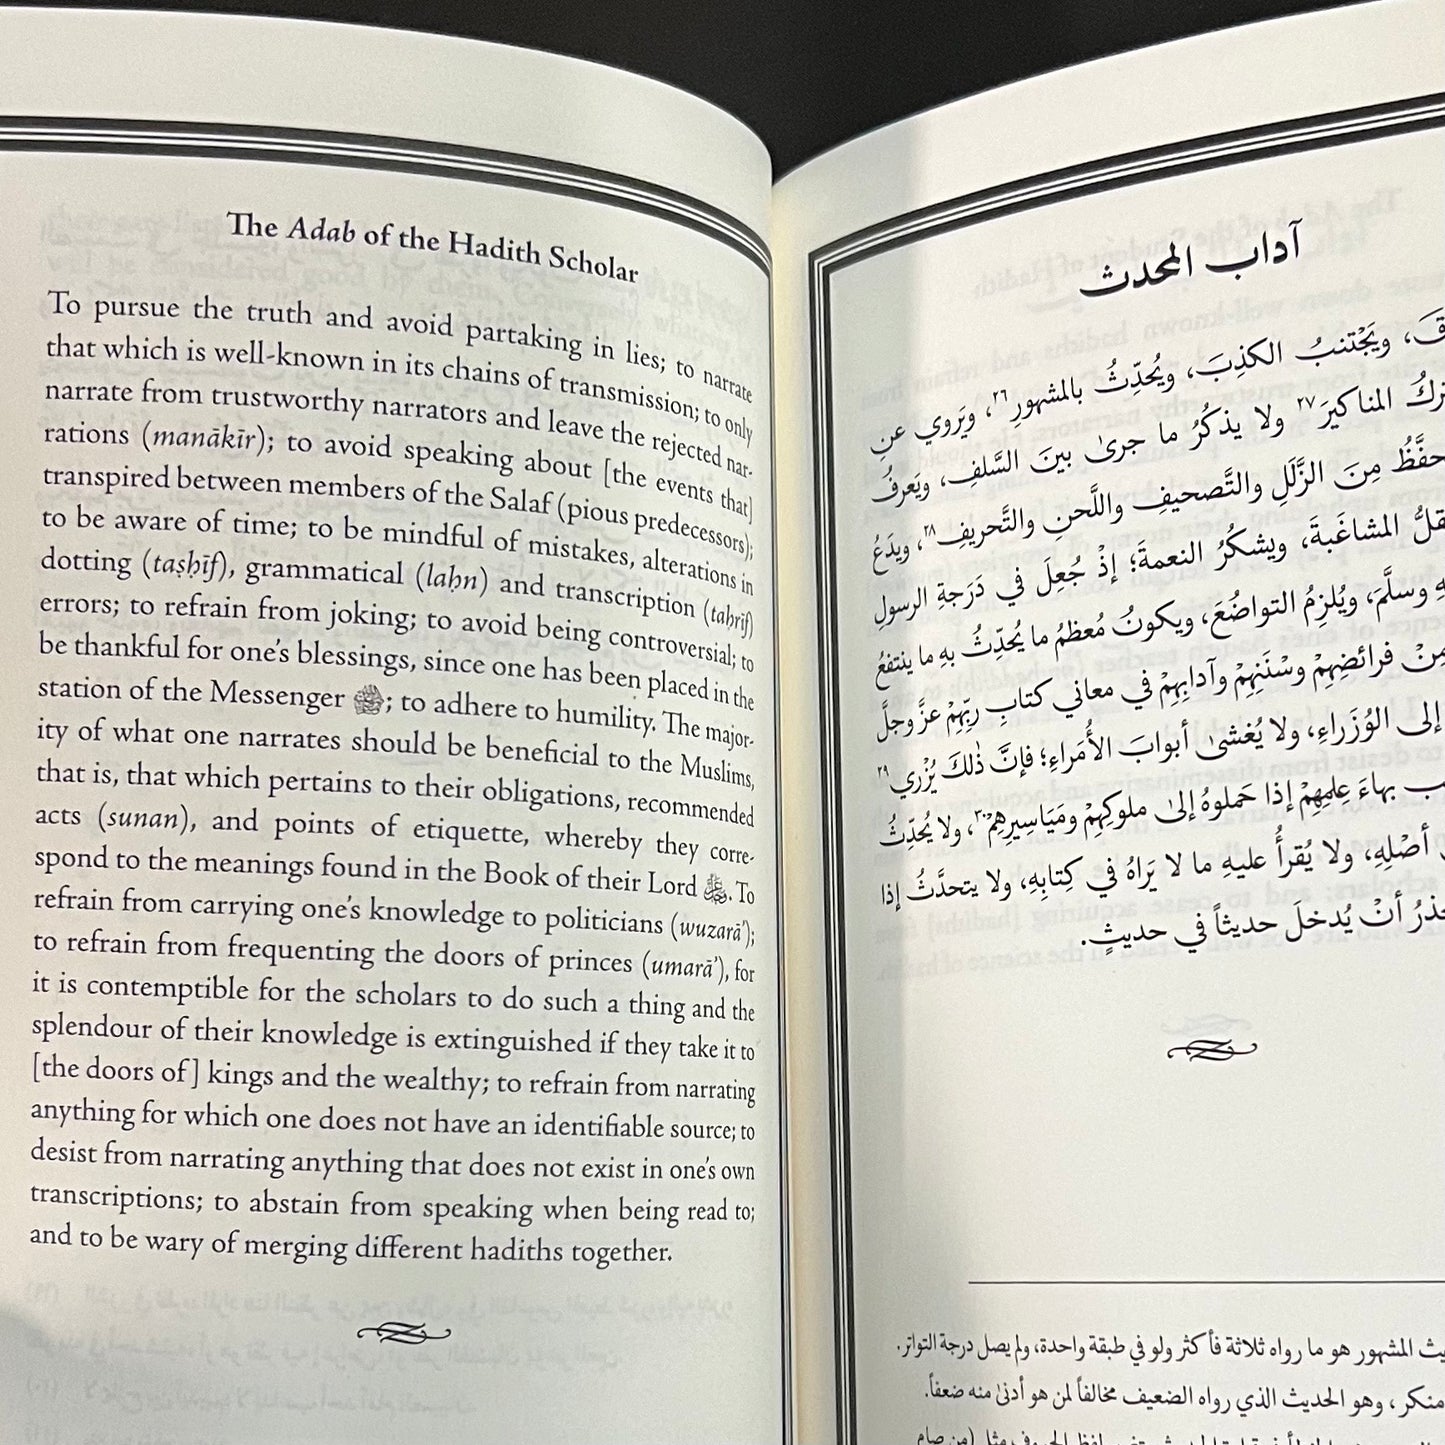 The Adab of the Hadith Scholar
To pursue the truth and avoid partaking in lies; to narrate
that which is well-known in its chains of transmission; to only
narrate from trustworthy narrators and leave the rejected nar-
rations (manākīr); to avoid speaking about [the events that]
transpired between members of the Salaf (pious predecessors);
to be aware of time; to be mindful of mistakes, alterations in
dotting (taṣḥīf), grammatical (laḥn) and transcription (taḥrīf)
errors; to refrain from joking; to avoid being controversial; to
be thankful for one's blessings, since one has been placed in the
station of the Messenger ﷺ; to adhere to humility. The major-
ity of what one narrates should be beneficial to the Muslims,
that is, that which pertains to their obligations, recommended
acts (sunan), and points of etiquette, whereby they corre-
spond to the meanings found in the Book of their Lord ﷻ. To
refrain from carrying one's knowledge to politicians (wuzarā’);
to refrain from frequenting the doors of princes (umarā’), for
it is contemptible for the scholars to do such a thing and the
splendour of their knowledge is extinguished if they take it to
[the doors of] kings and the wealthy; to refrain from narrating
anything for which one does not have an identifiable source; to
desist from narrating anything that does not exist in one's own
transcriptions; to abstain from speaking when being read to;
and to be wary of merging different hadiths together.
آداب المحدث
ويَجْتنبُ الكذِبَ، ويُحدِّثُ بالمشهورِ٢٦، ويَروي عنِ
المناكيرَ٢٧ ولا يذكُرُ ما جرىٰ بينَ السَّلفِ، ويَعرفُ
مِنَ الزَّلَلِ والتَّصحيفِ واللَّحنِ والتَّحريفِ٢٨، ويدَعُ
المشاغَبةَ، ويشكُرُ النعمةَ؛ إذْ جُعِلَ في دَرَجةِ الرسولِ
وسلَّمَ، ويُلزِمُ التواضُعَ، ويكونُ مُعظمُ ما يُحدِّثُ بهِ ما ينتفعُ
مِنْ فرائضِهِمْ وسُنَنِهِمْ وآدابِهِمْ في معاني كتابِ ربِّهِمْ عزَّ وجلَّ
إلى الوُزَراءِ، ولا يُغشىٰ أبوابَ الأُمَراءِ؛ فإنَّ ذٰلكَ يُزْري٢٩
بهاءَ عِلمِهِمْ إذا حَملوهُ إلىٰ ملوكِهِمْ ومَيَاسيرِهِمْ٣٠، ولا يُحدِّثُ
أصْلِهِ، ولا يُقرأُ عليهِ ما لا يَراهُ في كِتابِهِ، ولا يتحدَّثُ إذا
أنْ يُدخلَ حديثاً في حديثٍ.
المشهور هو ما رواه ثلاثة فأكثر ولو في طبقة واحدة، ولم يصل درجة التواتر.
منكر، وهو الحديث الذي رواه الضعيف مخالفاً لمن هو أدنىٰ منه ضعفاً.